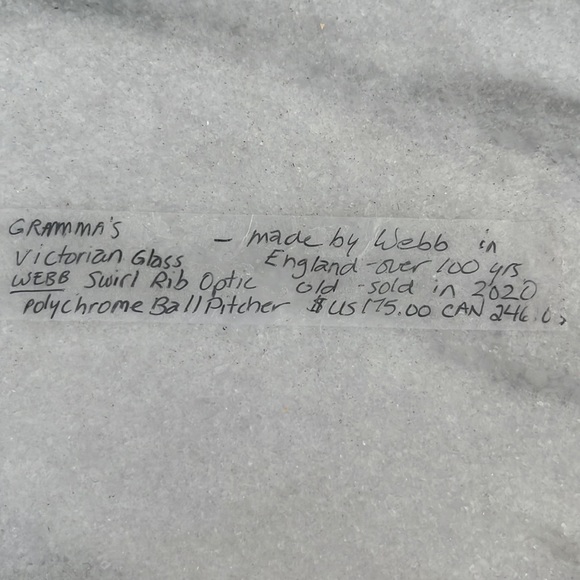 GRAMMA'S
Victorian Glass
WEBB Swirl Rib Optic
Polychrome Ball Pitcher
- made by Webb in
England - over 100 yrs
old - sold in 2020
$US 175.00 CAN